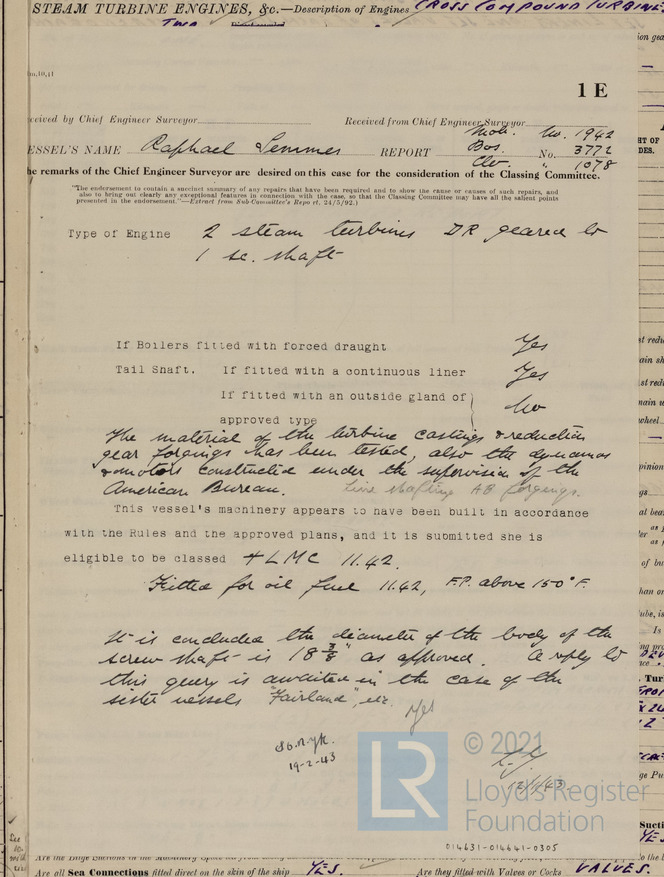 STEAM TURBINE ENGINES, &c.—Description of Engines CROSS COMPOUND TURBINE
TWO
1 E
eceived by Chief Engineer Surveyor
Received from Chief Engineer Surveyor
Mob. No. 1942
ESSEL'S NAME Raphael Semmes REPORT Bos. No. 3772
Clev. " 1078
he remarks of the Chief Engineer Surveyor are desired on this case for the consideration of the Classing Committee.
"The endorsement to contain a succinct summary of any repairs that have been required and to show the cause or causes of such repairs, and
also to bring out clearly any exceptional features in connection with the case, so that the Classing Committee may have all the salient points
presented in the endorsement."—Extract from Sub-Committee's Report. 24/5/92.)
Type of Engine 2 steam turbines DR geared to
1 sc. shaft
If Boilers fitted with forced draught Yes
Tail Shaft. If fitted with a continuous liner Yes
If fitted with an outside gland of
approved type No
The material of the turbine castings & reduction
gear forgings has been tested, also the dynamos
& motors constructed under the supervision of the
American Bureau. Line shafting AB forgings.
This vessel's machinery appears to have been built in accordance
with the Rules and the approved plans, and it is submitted she is
eligible to be classed + LMC 11.42.
Fitted for oil fuel 11.42, F.P. above 150°F.
It is concluded the diameter of the body of the
screw shaft is 18 3/8" as approved. A reply to
this query is awaited in the case of the
sister vessels "Fairland", etc.
Yes
19-2-43
12/1/43
© 2021
Lloyd's Register
Foundation
LR
014631-014641-0305
Are all Sea Connections fitted direct on the skin of the ship YES. Are they fitted with Valves or Cocks VALVES.